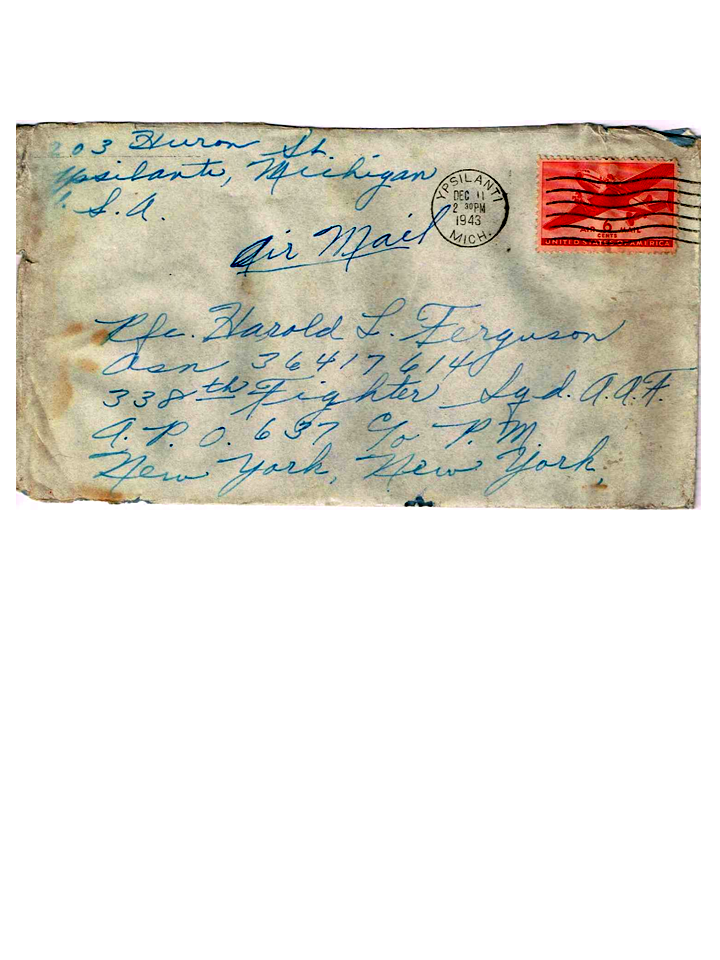 203 Huron St.
Ypsilanti, Michigan
U. S. A.
YPSILANTI
DEC 11
2 30 PM
1943
MICH.
AIR MAIL
6
CENTS
UNITED STATES OF AMERICA
Air Mail
Pfc. Harold L. Ferguson
Asn 36417614
338th Fighter Sqd. A.A.F.
A. P. O. 637 c/o P.M.
New York, New York,